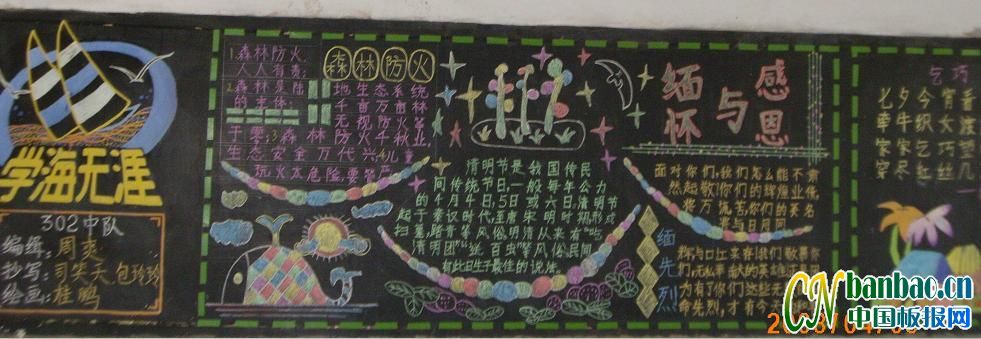 学海无涯
302中队
编缉:周爽
抄写:司笑天 包玲玲
绘画:桂鹏
1.森林防火,
人人有责;
2.森林是陆
的主体;
森林防火
地生态系统
千亩万亩林
无视防火等
于零;3.森林防火千秋业,
生态安全万代兴;4.儿童
玩火太危险,要
清明节是我国传民
间传统节日,一般每年公力
的4月4日,5日或六日,清明节
起于秦汉时代,至唐宋明时期形成
扫墓,踏青等风俗明清从来有"吃
清明团""送百虫"等风俗民间
有此日生子最佳的说法。
缅怀与感恩
面对你们,我们怎么能不肃
然起敬!你们的辉煌业伟,
将万流芳,你们的英名
与日月同
缅先烈
们无私奉献的英雄
为有了你们这些无
命先烈,才有今
乞巧
七夕今宵看
牵牛织女渡
家家乞巧望
穿尽红丝几
banbao.cn
中国板报网